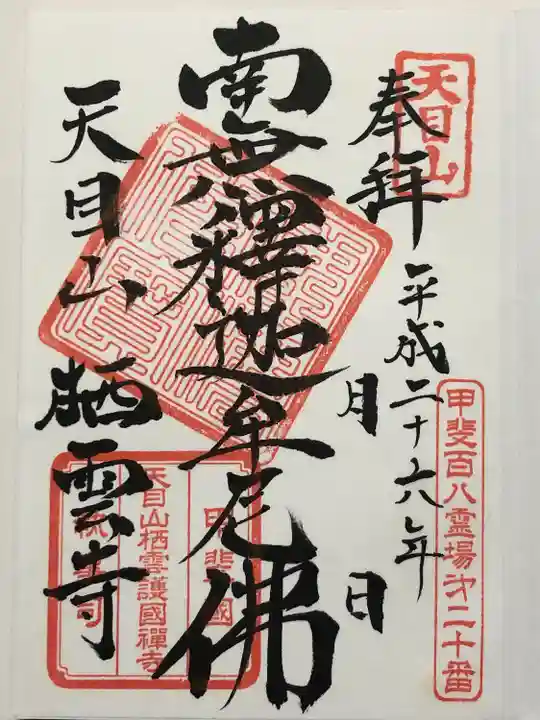 天目山
奉拝
平成二十六年
月 日
甲斐百八霊場才二十番
南無釋迦牟尼佛
天目山 栖雲寺
甲斐國
天目山栖雲護國禪寺